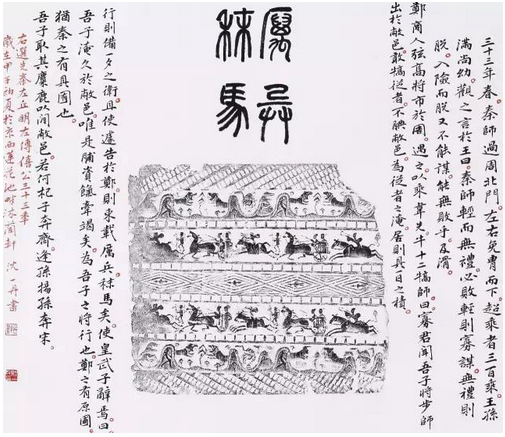 三十三年春秦師過周北門左右免胄而下超乘者三百乘王孫
滿尚幼觀之言於王曰秦師輕而無禮必敗輕則寡謀無禮則
脫入險而脫又不能謀能無敗乎及滑
鄭商人弦高將市於周遇之以乘韋先牛十二犒師曰寡君聞吾子將步師
出於敝邑敢犒從者不腆敝邑為從者之淹居則具日之積
厲兵
秣馬
行則備一夕之衛且使遽告於鄭則束載厲兵秣馬矣使皇武子辭焉曰
吾子淹久於敝邑唯是脯資餼牽竭矣為吾子之將行也鄭之有原圃
猶秦之有具囿也
吾子取其麋鹿以閒敝邑若何杞子奔齊逢孫揚孫奔宋
右選先秦左丘明左傳僖公三十三年
歲在甲午初夏於京西蓮花池畔 沈一丹書